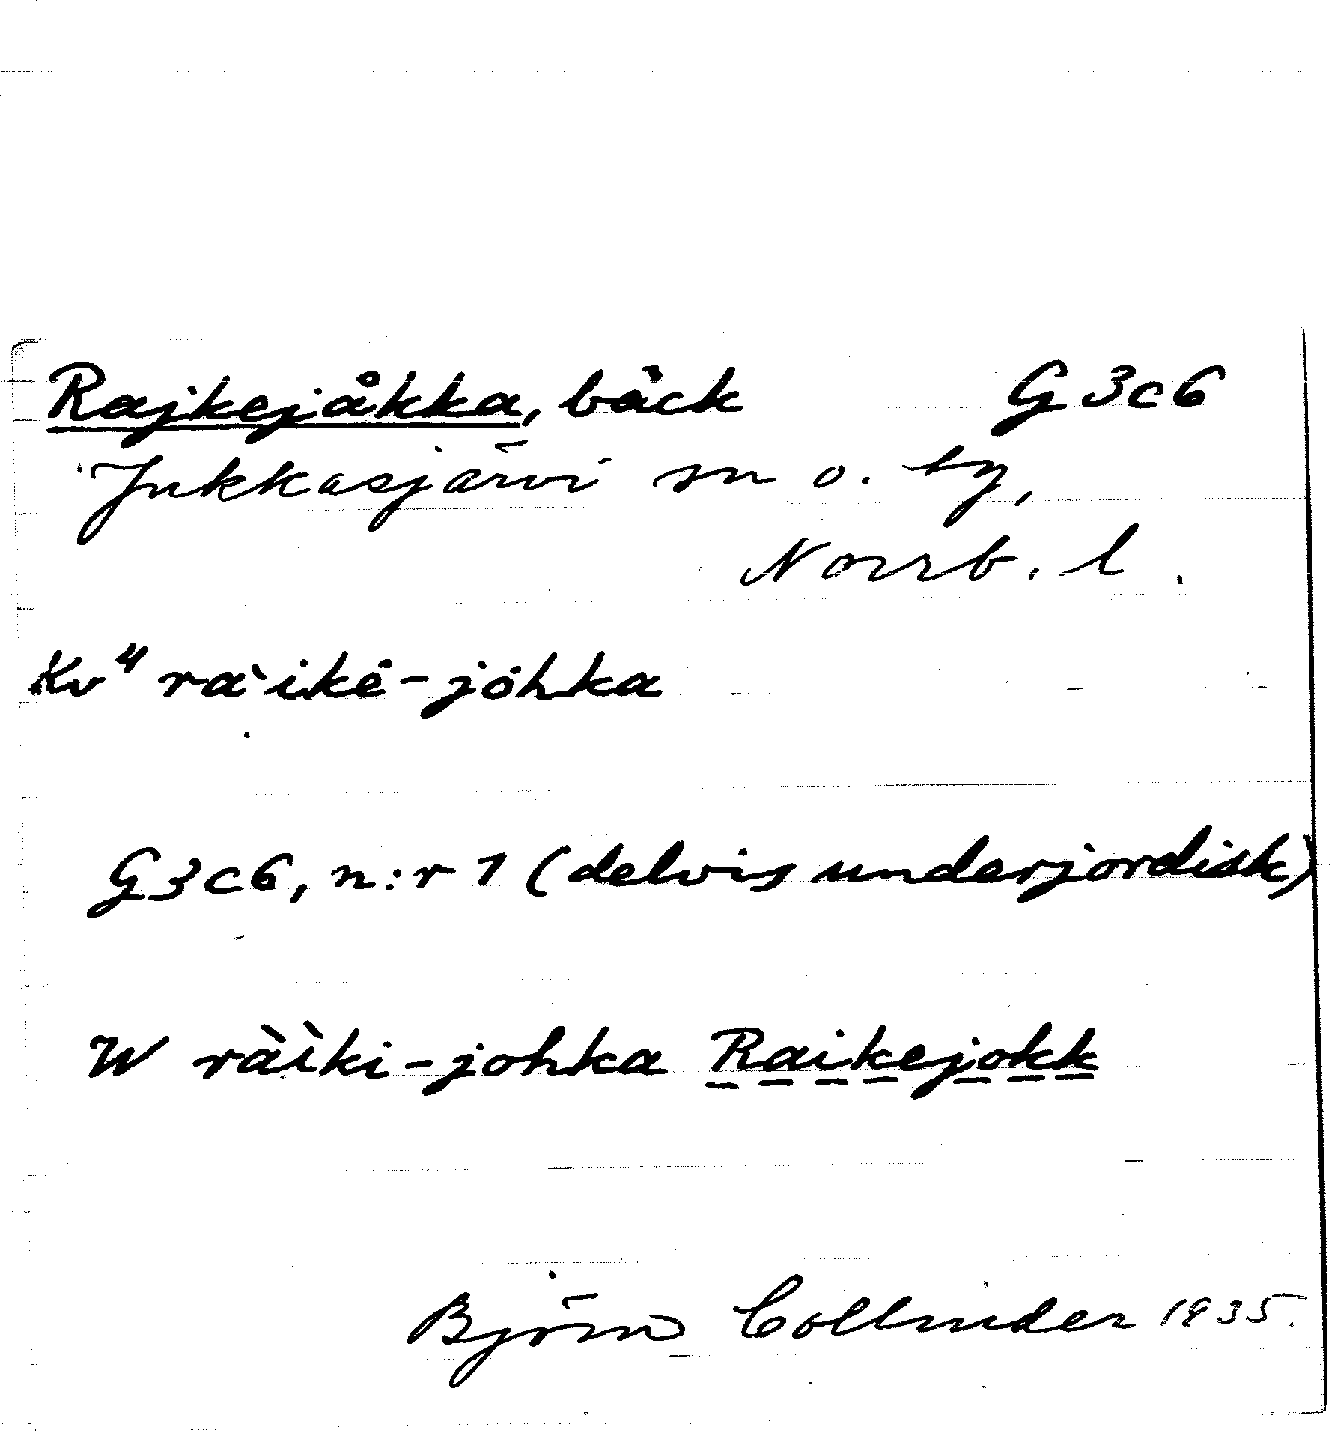 Rajkejåkka, bäck G3c6
Jukkasjärvi sn o. by,
Norrb. l.
Kv⁴ ra`ikē-jȯhka
G3c6, n:r 1 (delvis underjordisk)
W ràìki-johka Raikejokk
Björn Collinder 1935.